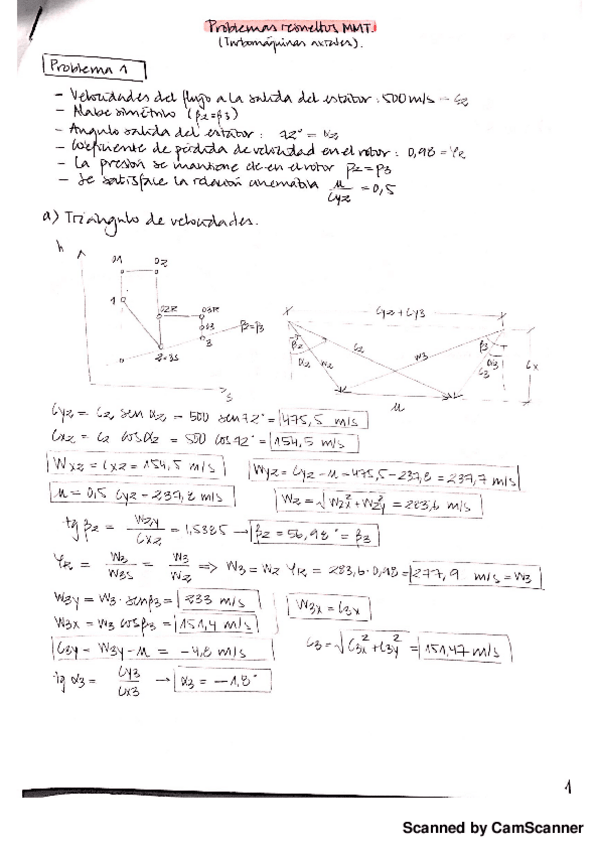 Problemas resueltos MMT.
(Turbomáquinas axiales).
Problema 1
- Velocidades del flujo a la salida del estátor : 500 m/s = C2
- Álabe simétrico (β2=β3)
- Ángulo salida del estátor : 72° = α2
- Coeficiente de pérdida de velocidad en el rotor : 0,98 = ΨR
- La presión se mantiene cte en el rotor P2 = P3
- Se satisface la relación cinemática u/Cy2 = 0,5
a) Triángulo de velocidades.
h
01 02
1
02R 03R
03
3
P2=P3
2=3S
s
Cy2 + Cy3
β2 α2 W2 C2 W3 β3 α3 C3 Cx
u
Cy2 = C2 sen α2 = 500 sen 72° = 475,5 m/s
Cx2 = C2 cos α2 = 500 cos 72° = 154,5 m/s
Wx2 = Cx2 = 154,5 m/s Wy2 = Cy2 - u = 475,5 - 237,8 = 237,7 m/s
u = 0,5 Cy2 = 237,8 m/s W2 = √W2x² + W2y² = 283,6 m/s
tg β2 = W2y/Cx2 = 1,5385 → β2 = 56,98° = β3
ΨR = W3/W3S = W3/W2 => W3 = W2 ΨR = 283,6 · 0,98 = 277,9 m/s = W3
W3y = W3 · sen β3 = 233 m/s W3x = C3x
W3x = W3 cos β3 = 151,4 m/s
C3y = W3y - u = -4,8 m/s C3 = √C3x² + C3y² = 151,47 m/s
tg α3 = Cy3/Cx3 → α3 = -1,8°
1
Scanned by CamScanner